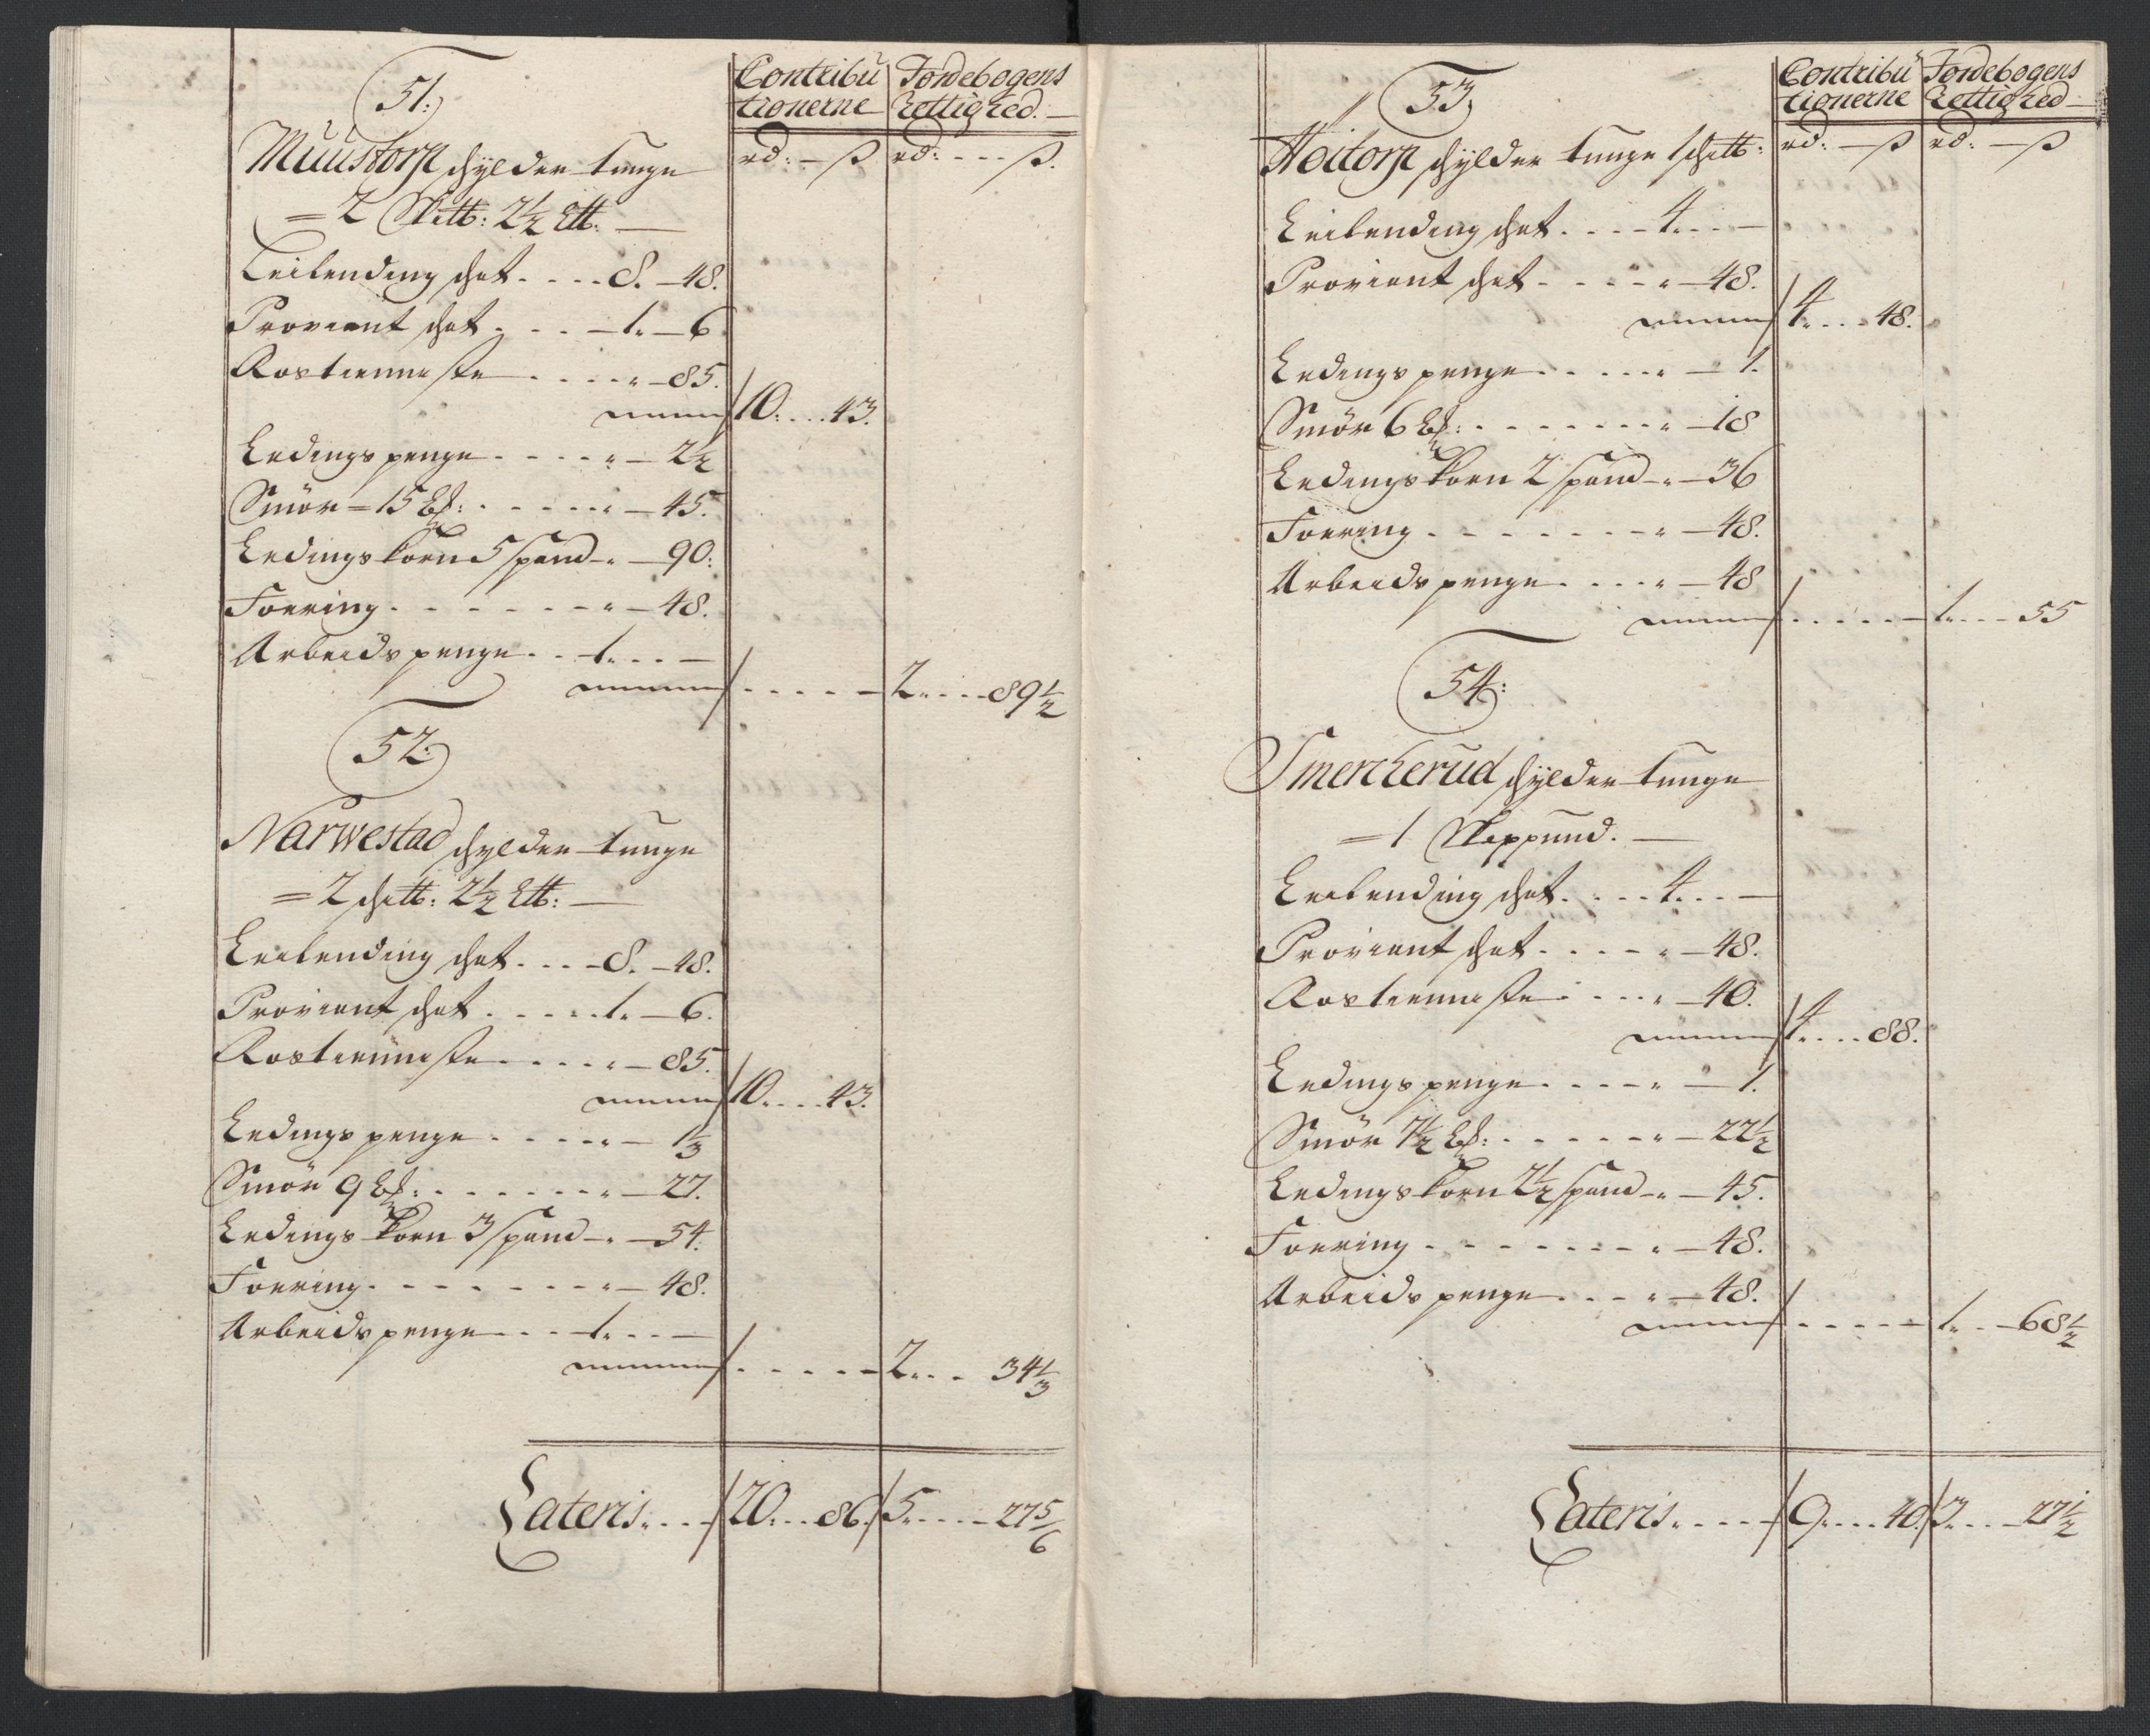 Contribu tionerne
Jordebogens Rettighed.
rd: – ß rd: – – – ß.
51:
Muustorp schylder tunge
= 2 Sk℔: 2½ L℔: —
Leilending schat . . . . 8. – 48.
Proviant schat . . . – 1. – 6
Rostienneste . . . . „ – 85.
10. . . . 43.
Ledings penge . . . . „ – 2½
Smör = 15 . . . . . „ – 45.
Ledings korn 5 spand – „ – 90:
Foering . . . . . . . „ – 48.
Arbeids penge . . . 1. . . —
. . . . . 2. . . . 89½
52:
Narwestad schylder tunge
= 2 sch℔: 2½ L℔: —
Leilending schat . . . – 8. – 48.
Proviant schat . . . . . 1. – 6.
Rostienneste . . . . „ – 85.
10. . . . 43.
Ledings penge . . . . „ – 1⅓
Smör 9 . . . . . . . „ – 27.
Ledings korn 3 spand – „ – 54:
Foering . . . . . . . „ – 48.
Arbeids penge . . . 1. . . —
. . . . . 2. . . . 34⅓
Lateris . . . . 20. . . 86. 5. . . . . 27⅚
Contribu tionerne
Jordebogens Rettighed
rd: – ß rd: – ß
53
Heitorp schylder tunge 1 sch℔:
Leilending schat . . . . 4. . . —
Proviant schat . . . . „ – 48.
4. . . . 48.
Ledings penge . . . . . „ – 1.
Smör 6 . . . . . . . . „ – 18
Ledings korn 2 spand – „ – 36
Foering . . . . . . . „ – 48.
Arbeids penge . . . . „ – 48
. . . . . 1. . . . 55
54:
Smercherud schylder tunge
= 1 Skippund. —
Leilending schat . . . . 4. . . —
Proviant schat . . . . „ – 48.
Rostienneste . . . . „ – 40.
4. . . . 88.
Ledings penge . . . . „ – 1.
Smör 7½ . . . . . . „ – 22½
Ledings korn 2½ spand – „ – 45.
Foering . . . . . . . . „ – 48.
Arbeids penge . . . „ – 48.
. . . . . 1. . . 68½
Lateris . . . . . 9. . . . 40. 3. . . . 27½